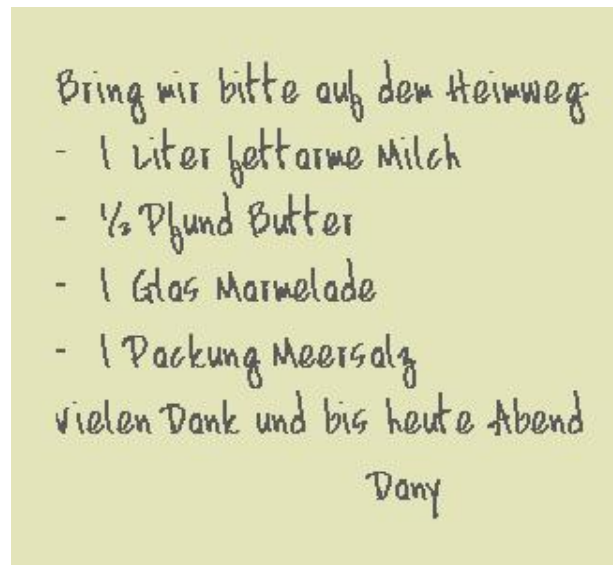 Bring mir bitte auf dem Heimweg
- 1 Liter fettarme Milch
- ½ Pfund Butter
- 1 Glas Marmelade
- 1 Packung Meersalz
Vielen Dank und bis heute Abend
Dany